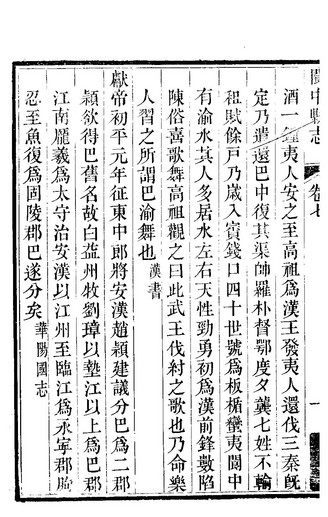 閬中縣志 卷七 一
酒一鍾夷人安之至高祖爲漢王發夷人還伐三秦旣
定乃遣還巴中復其渠帥羅朴督鄂度夕龔七姓不輸
租賦餘戶乃歲入賨錢口四十世號爲板楯蠻夷閬中
有渝水其人多居水左右天性勁勇初爲漢前鋒數陷
陳俗喜歌舞高祖觀之曰此武王伐紂之歌也乃命樂
人習之所謂巴渝舞也漢書
獻帝初平元年征東中郎將安漢趙穎建議分巴爲二郡
穎欲得巴舊名故白益州牧劉璋以墊江以上爲巴郡
江南龐羲爲太守治安漢以江州至臨江爲永寧郡朐
忍至魚復爲固陵郡巴遂分矣華陽國志